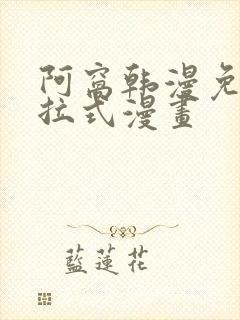 阿窩韩漫免
拉式漫畫
藍蓮花